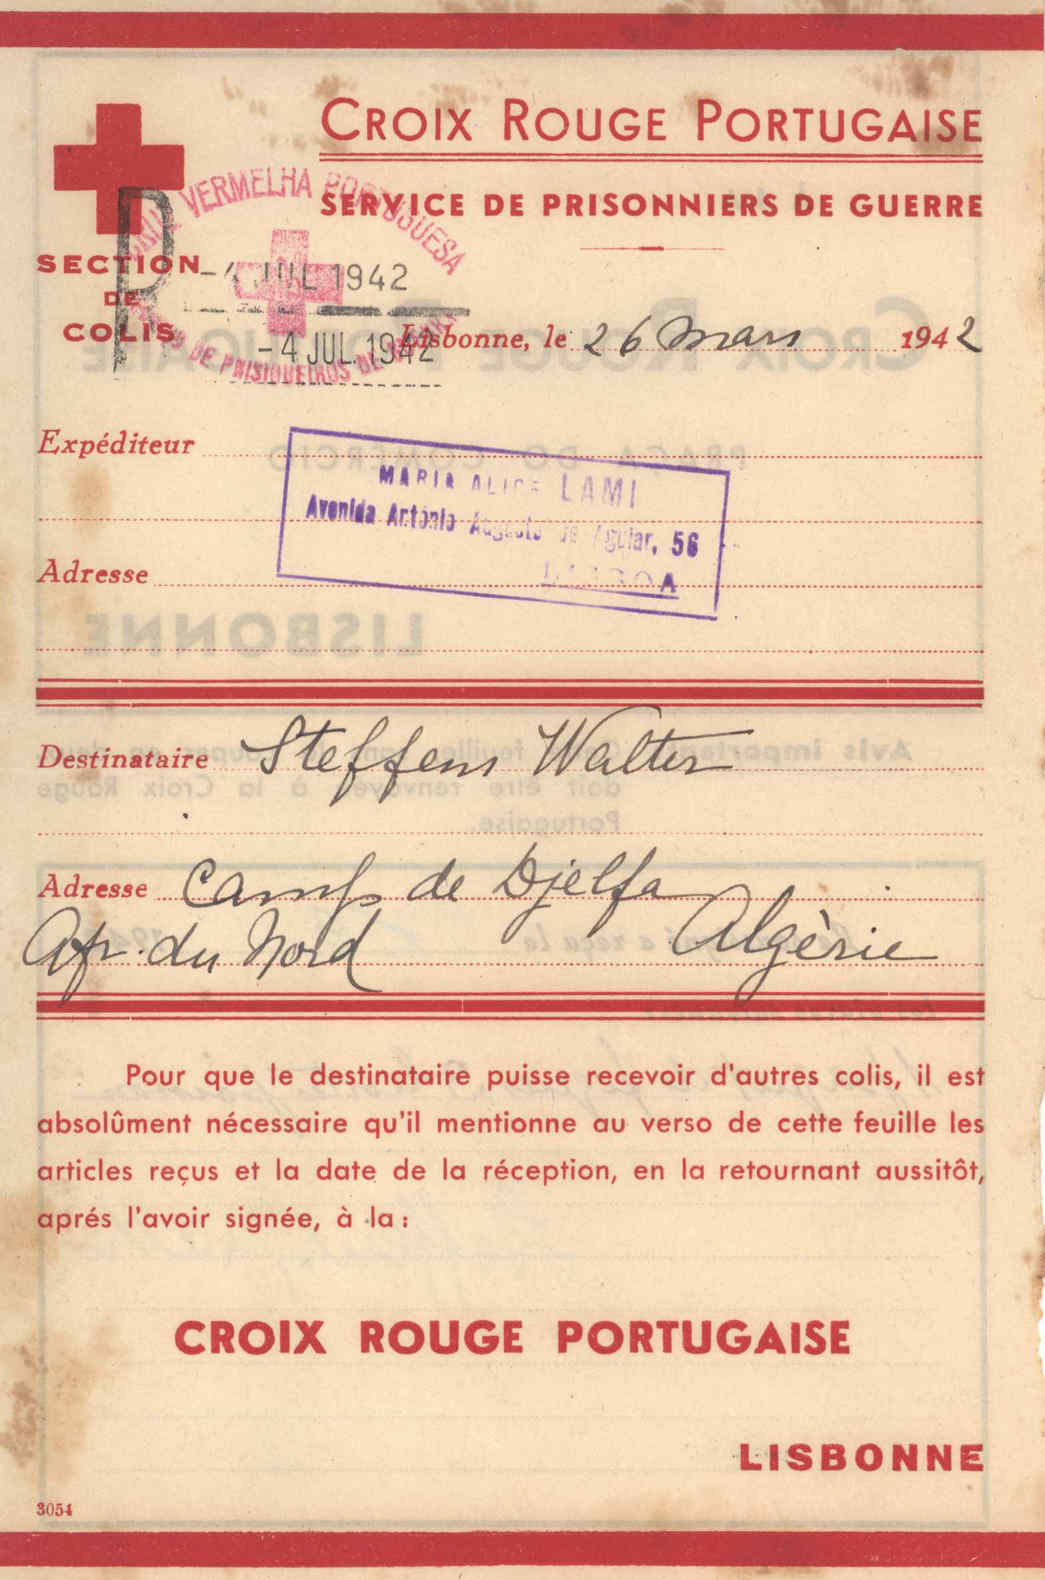 CROIX ROUGE PORTUGAISE
SERVICE DE PRISONNIERS DE GUERRE
SECTION
DE
COLIS
VERMELHA PORTUGUESA
DE PRISIONEIROS DE
R
-4 JUL 1942
-4 JUL. 1942
Lisbonne, le 26 Mars 1942
Expéditeur
MARIA ALICE LAMI
Avenida António Augusto de Aguiar, 56
LISBOA
Adresse
Destinataire Steffens Walter
Adresse Camp de Djelfa
Afr. du Nord Algèrie
Pour que le destinataire puisse recevoir d'autres colis, il est
absolûment nécessaire qu'il mentionne au verso de cette feuille les
articles reçus et la date de la réception, en la retournant aussitôt,
aprés l'avoir signée, à la:
CROIX ROUGE PORTUGAISE
LISBONNE
3054